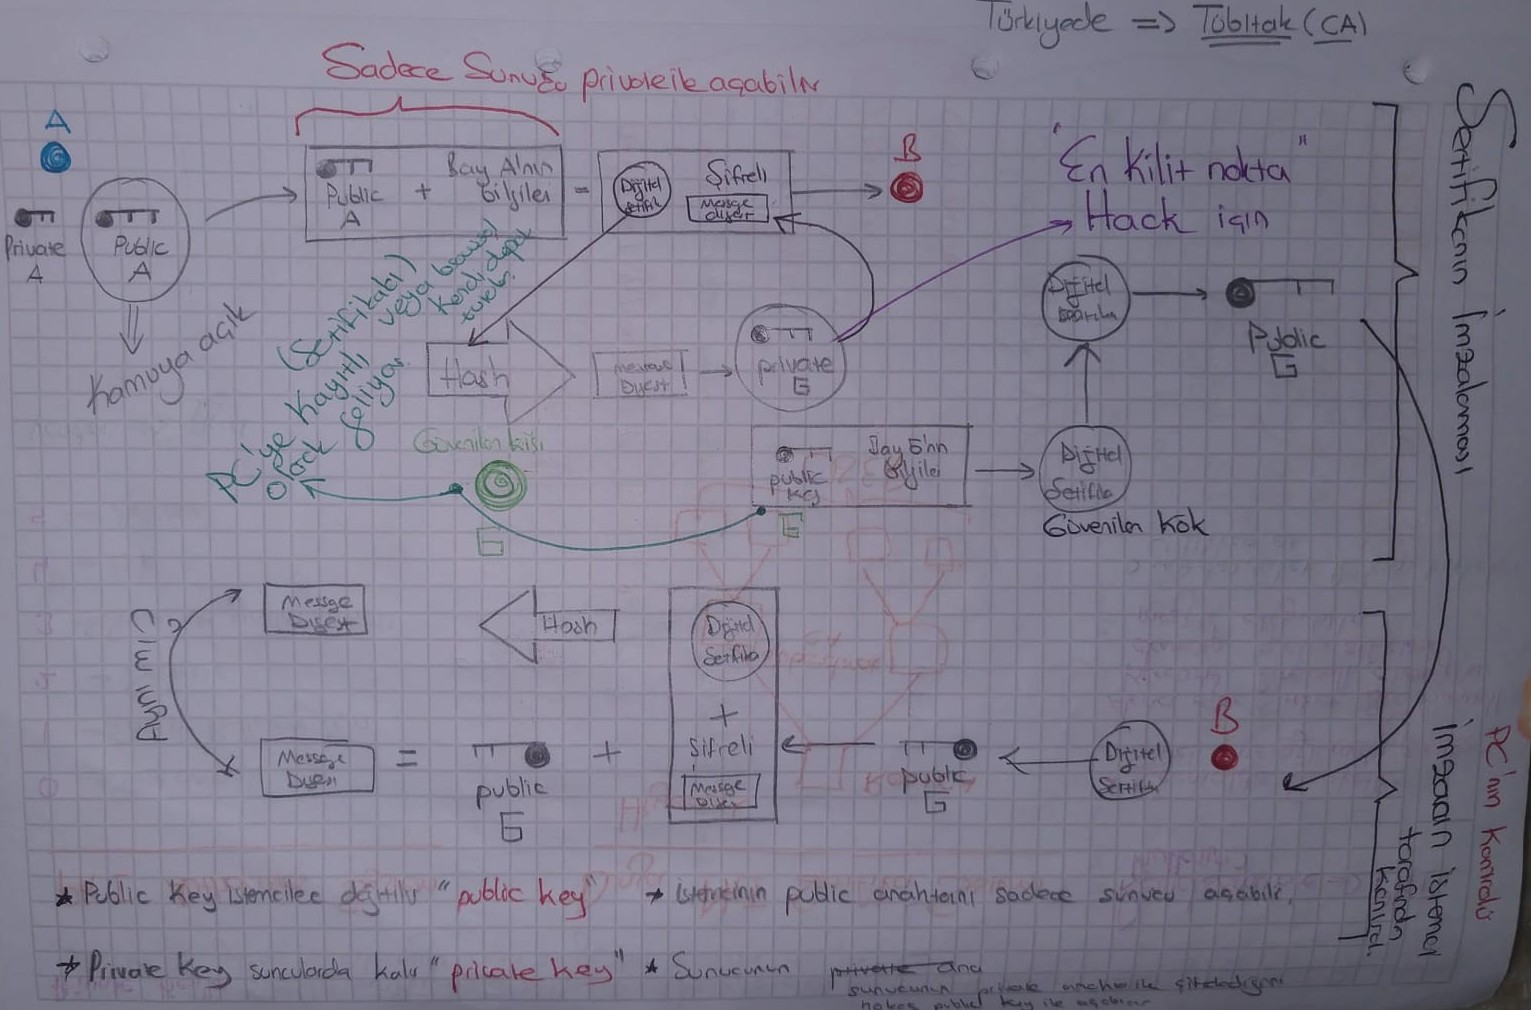 Türkiyede => Tübitak (CA)
Sadece Sunucu private ile açabilir
A
Private
A
Public
A
Kamuya açık
Public
A
+
Bay A'nın
bilgileri
=
Dijital
Sertifik
Şifreli
Messge
Digest
B
"En kilit nokta"
Hack için
Sertifikanın İmzalanması
PC'ye Kayıtlı (Sertifikabı)
olarak geliyor.
veya browser
kendi depo
Hash
Message
Digest
private
G
Dijitel
Public
G
Güvenilen kişi
G
public
key
G
Bay G'nin
bilgileri
Dijitel
Sertifika
Güvenilen kök
Aynı mı?
Messge
Digest
Hash
Dijitel
Sertifika
+
Şifreli
Messge
Digest
Messege
Digest
=
public
G
+
public
G
Dijitel
Sertifika
B
PC'nin kontrolü
İmzanın istemci
tarafında
kontrol.
* Public Key istemcilee dağıtılır "public key"
* istemcinin public anahtarını sadece sunucu açabilir.
* Private Key suncularda kalır "pricate key"
* Sunucunun private ana
sunucunun private anahtarı ile şifreledigini
herkes public key ile açabilir